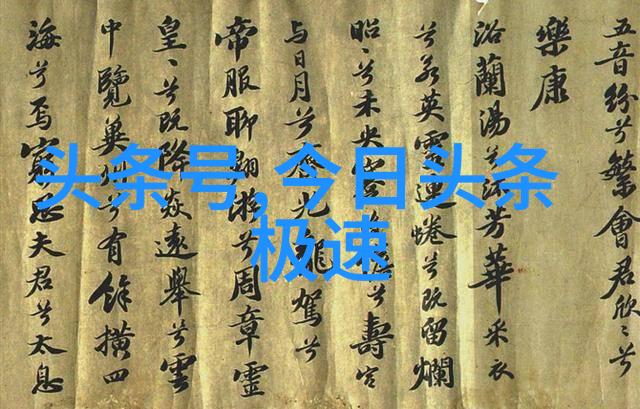 头条号,今日头条
极速
五音紛兮繁會君欣〻兮
樂康
浴蘭湯兮沐芳華采衣
兮若英靈連蜷兮既留爛
昭〻兮未央兮壽宮
与日月兮齊光龍駕兮
帝服聊翱游兮周章靈
皇〻兮既降猋遠舉兮雲
中覽冀州兮有餘橫四
海兮焉窮思夫君兮太息